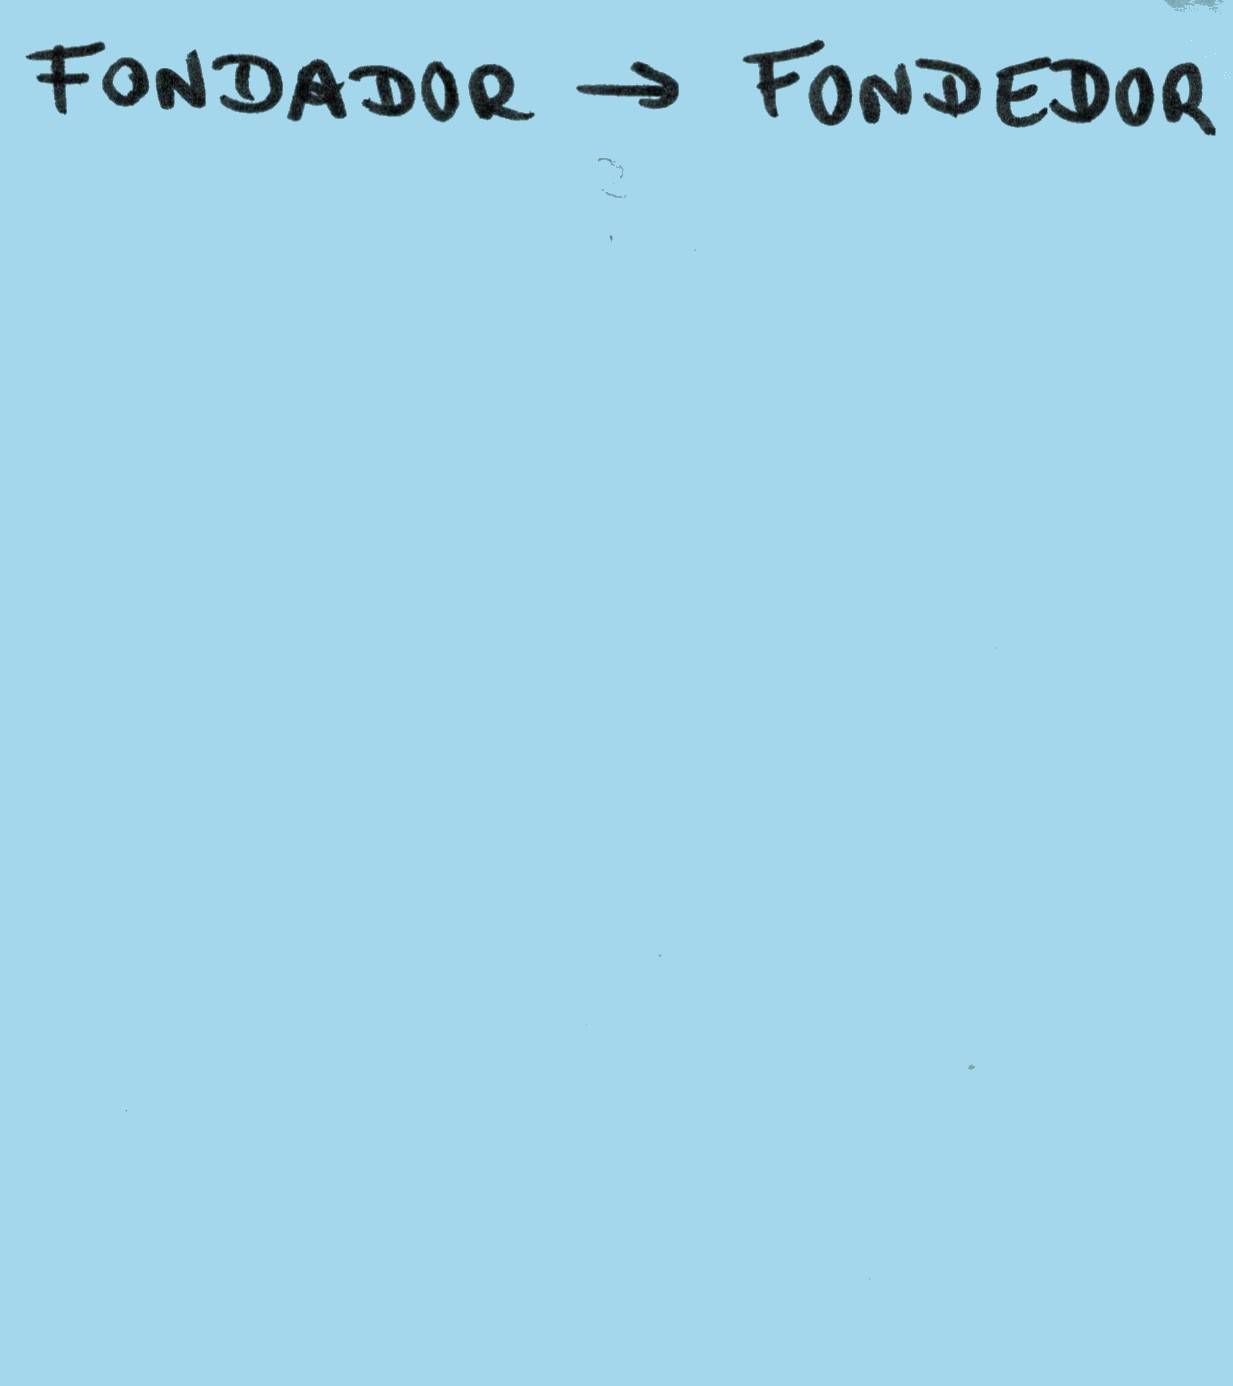 FONDADOR → FONDEDOR